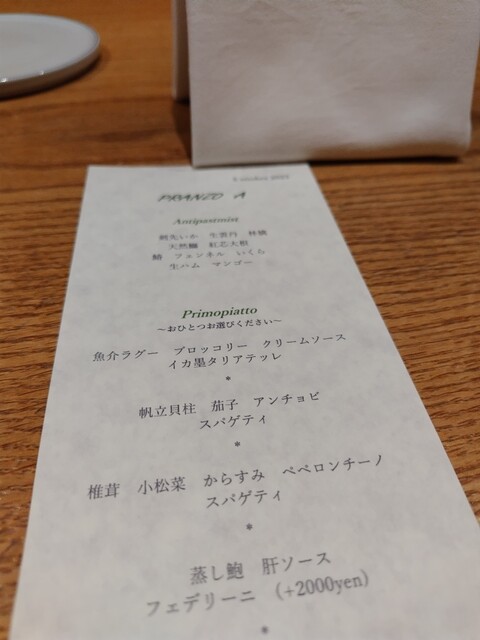 PRANZO A
Antipastimisti
剣先いか 生雲丹 林檎
天然鰤 紅芯大根
鯖 フェンネル いくら
生ハム マンゴー
Primopiatto
～おひとつお選びください～
魚介ラグー ブロッコリー クリームソース
イカ墨タリアテッレ
*
帆立貝柱 茄子 アンチョビ
スパゲティ
*
椎茸 小松菜 からすみ ペペロンチーノ
スパゲティ
*
蒸し鮑 肝ソース
フェデリーニ (+2000yen)
*